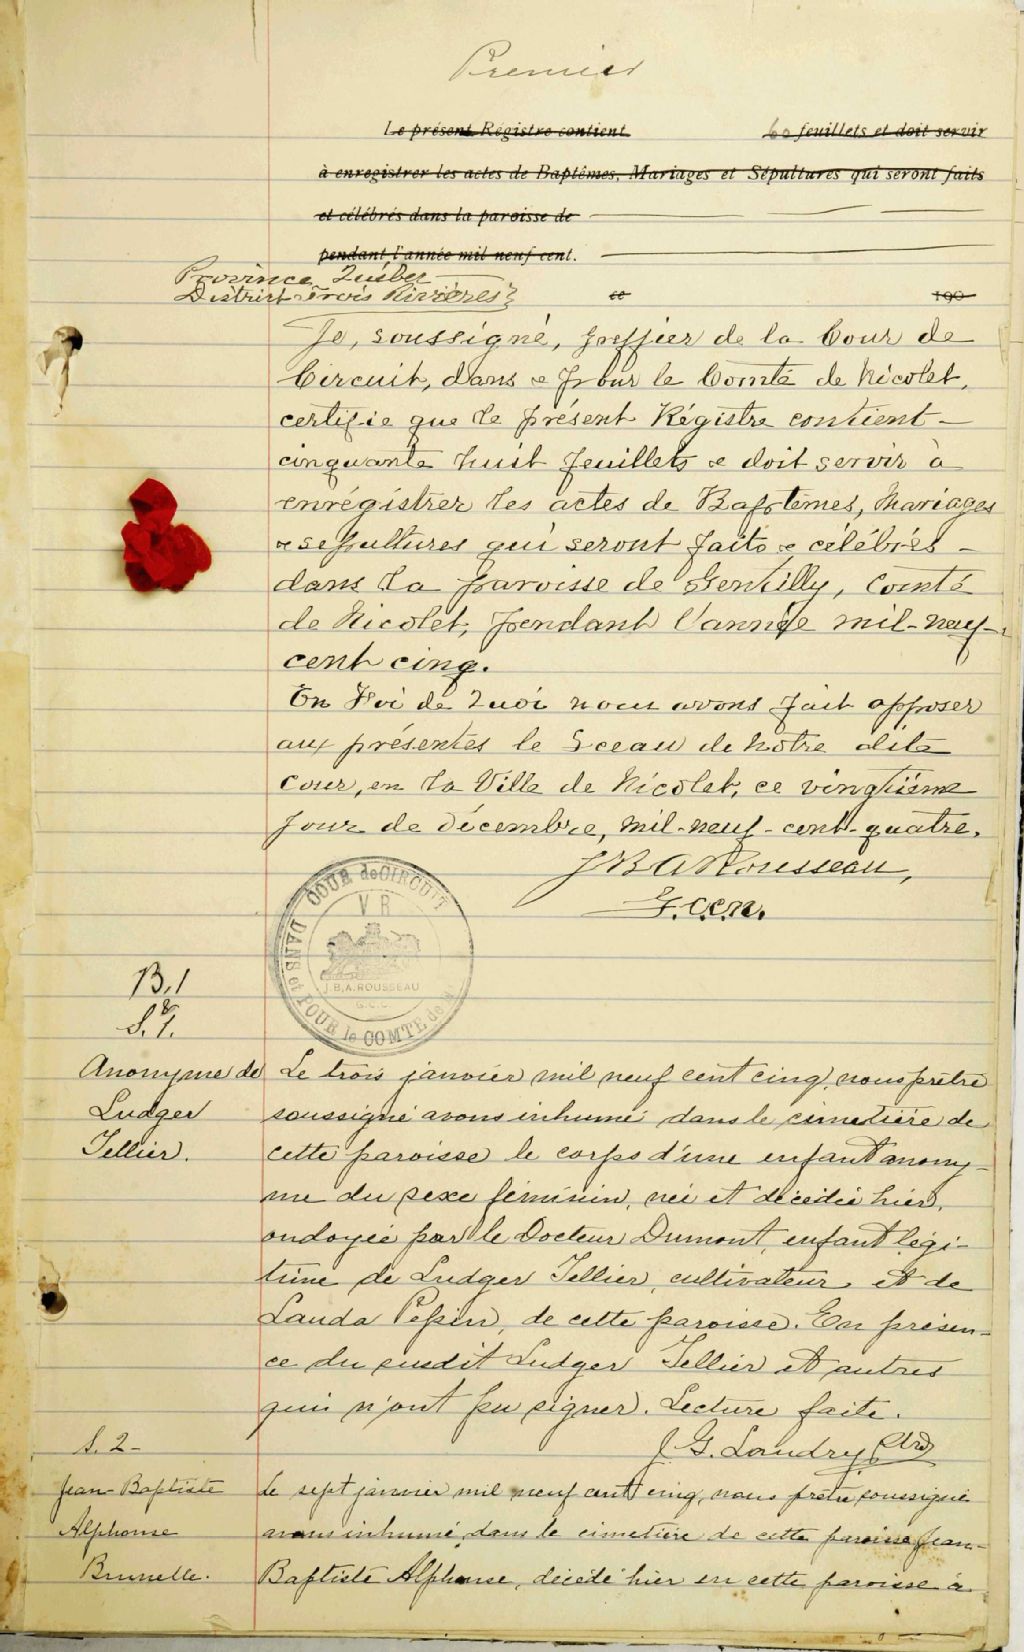 Premier
Le présent Régistre contient 60 feuillets et doit servir
à enregistrer les actes de Baptêmes, Mariages et Sépultures qui seront faits
et célébrés dans la paroisse de
pendant l'année mil neuf cent.
Province Québec
District Trois Rivières
ce 190
Je, soussigné, Greffier de la Cour de
Circuit, dans & pour le Comté de Nicolet,
certifie que le présent Régistre contient
cinquante huit feuillets & doit servir à
enrégistrer les actes de Baptêmes, Mariages
& sepultures qui seront faits & célébrés
dans la paroisse de Gentilly, Comté
de Nicolet, pendant l'année mil-neuf-
cent cinq.
En Foi de Quoi nous avons fait apposer
aux présentes le Sceau de Notre dite
Cour, en la Ville de Nicolet, ce vingtième
jour de décembre, mil-neuf-cent-quatre.
J B A Rousseau,
G.C.C.N.
COUR de CIRCUIT
DANS et POUR le COMTE de N.
V R
J.B.A. ROUSSEAU
G.C.C.
B.1
&
S.1.
Anonyme de
Ludger
Tellier.
Le trois janvier mil neuf cent cinq, nous prêtre
soussigné avons inhumé dans le cimetière de
cette paroisse le corps d'une enfant anony-
me du sexe féminin, née et décédée hier,
ondoyée par le Docteur Dumont, enfant légi-
time de Ludger Tellier, cultivateur et de
Landa Pepin, de cette paroisse. En présen-
ce du susdit Ludger Tellier et autres
qui n'ont pu signer. Lecture faite.
J. G. Landry, Ptre
S. 2-
Jean-Baptiste
Alphonse
Brunelle.
Le sept janvier mil neuf cent cinq, nous prêtre soussigné
avons inhumé dans le cimetière de cette paroisse Jean-
Baptiste Alphonse, décédé hier en cette paroisse à